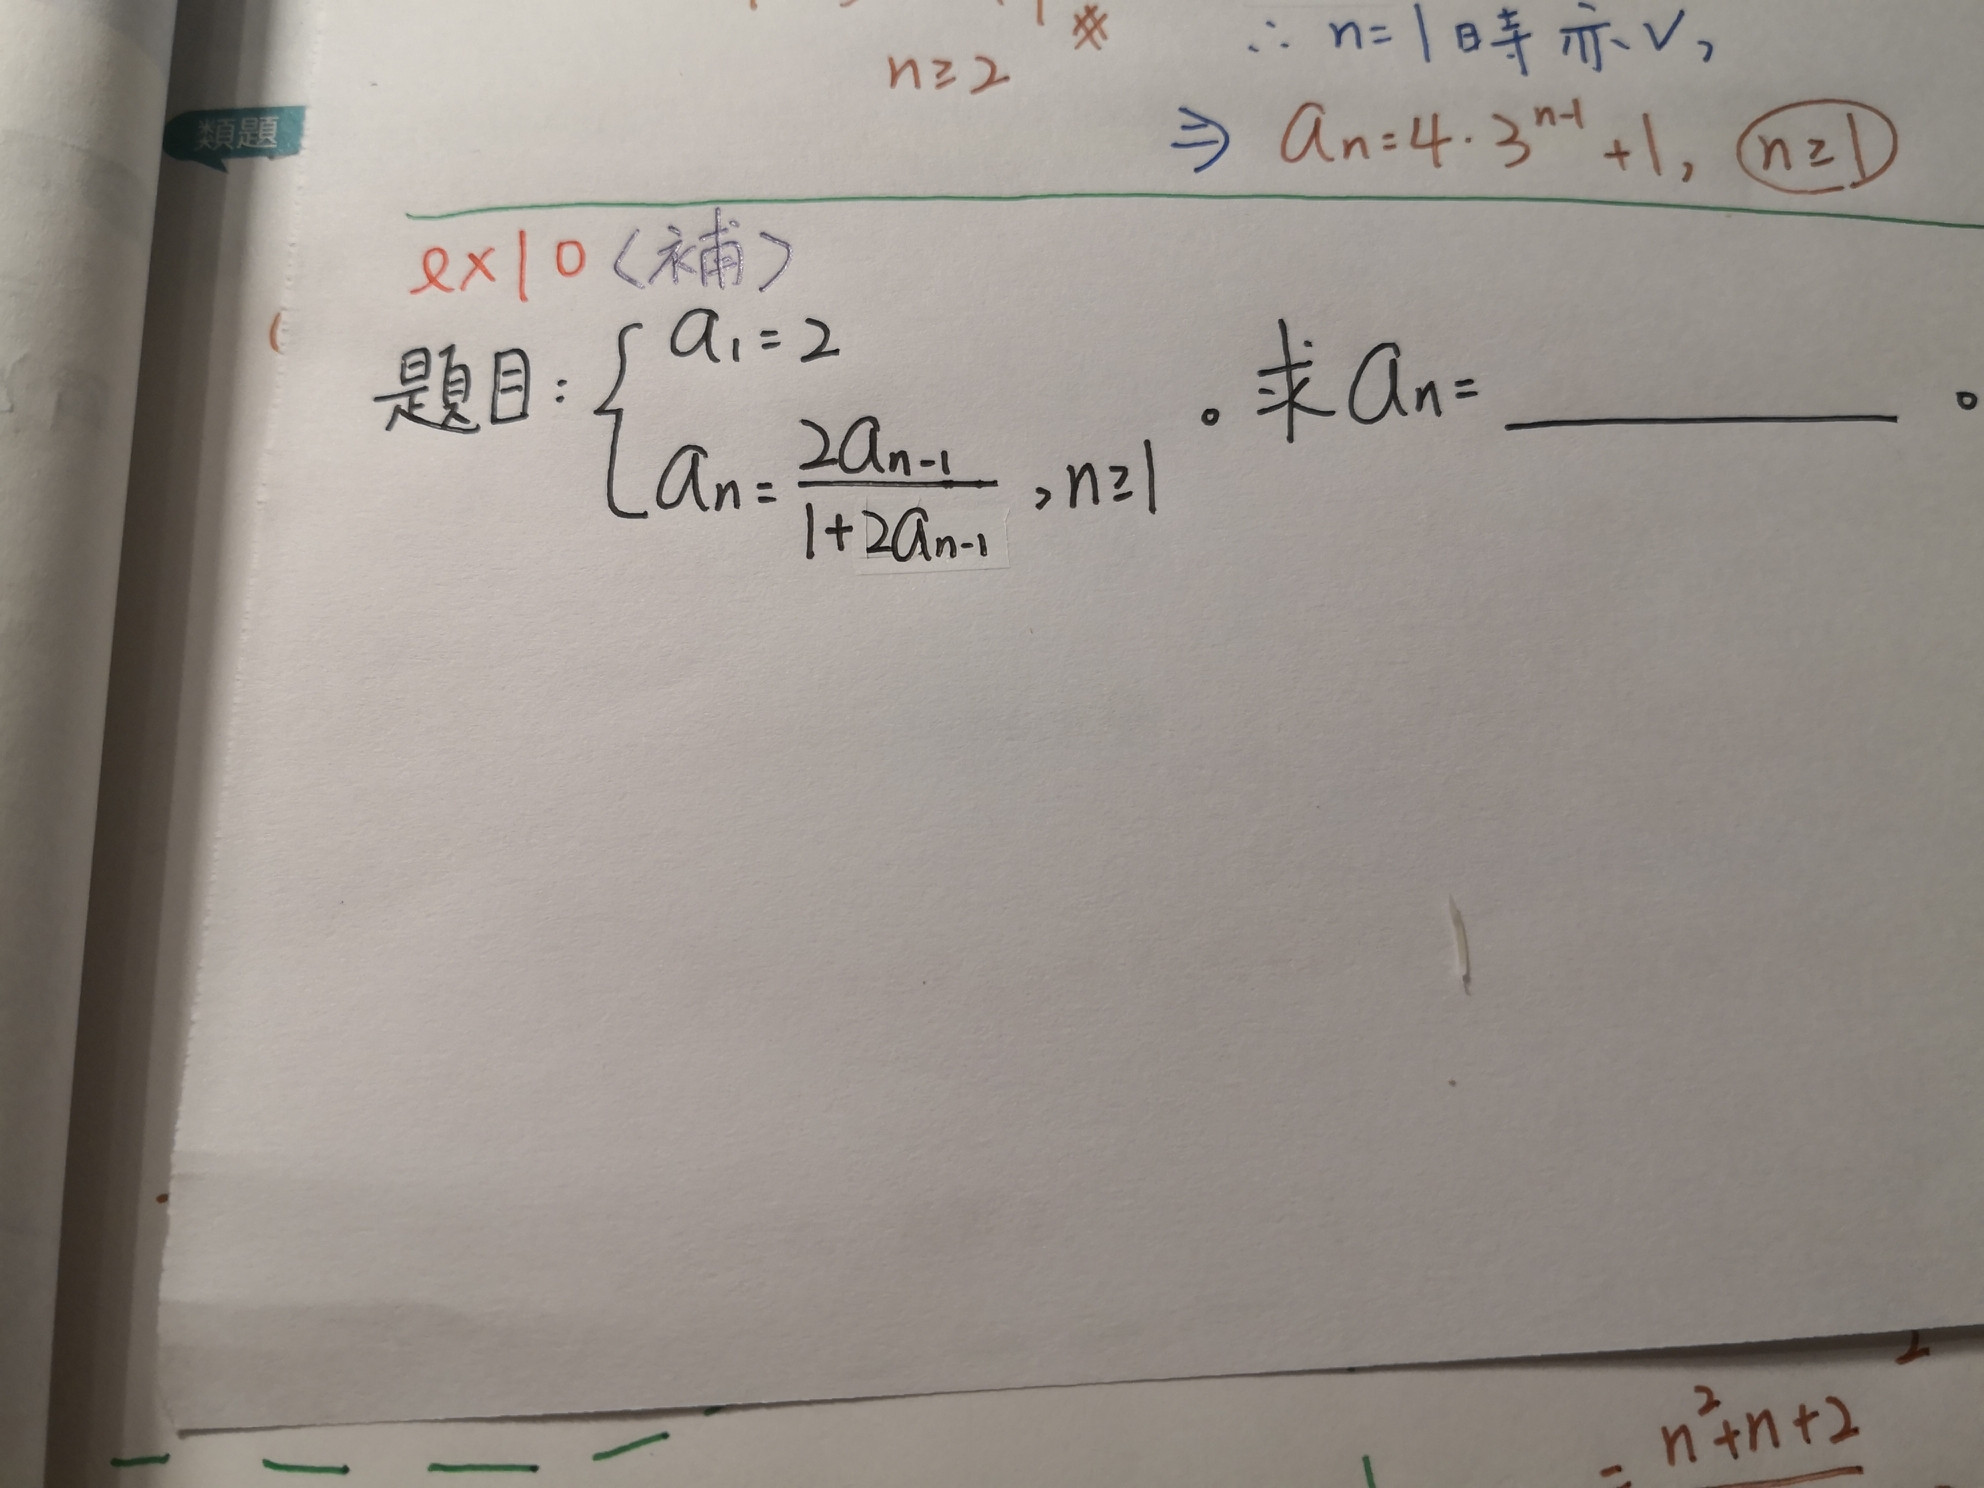 n≥2
∴ n=1時亦✓,
類題
⇒ an=4·3^(n-1)+1, n≥1
ex10〈補〉
題目: { a1=2
an= 2an-1 / 1+2an-1 , n≥1 。求an=______。
= n²+n+2